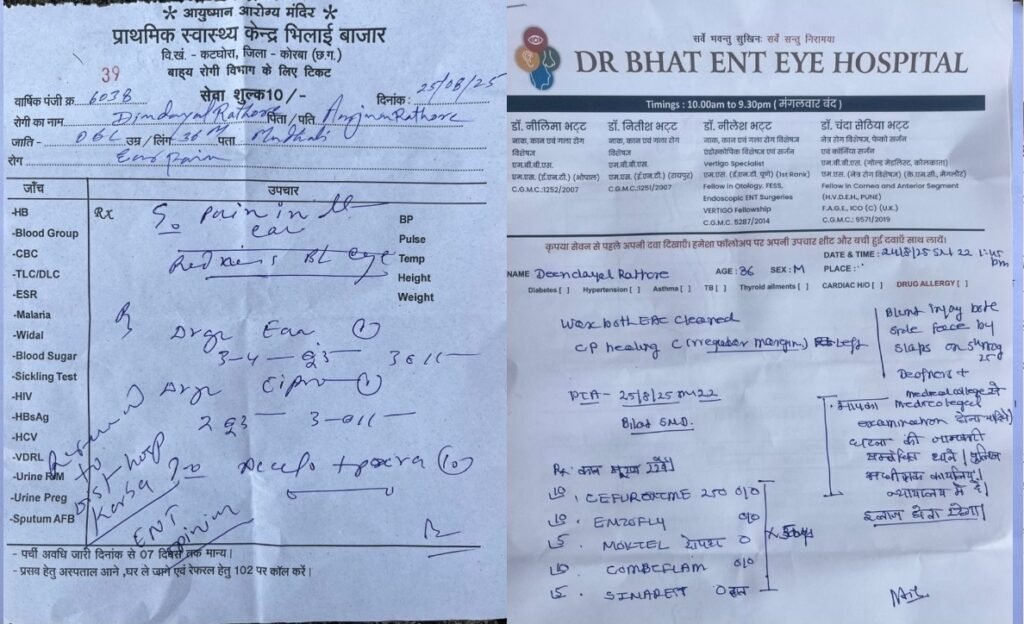 * आयुष्मान आरोग्य मंदिर *
प्राथमिक स्वास्थ्य केन्द्र भिलाई बाजार
वि.खं. - कटघोरा, जिला - कोरबा (छ.ग.)
39 बाह्य रोगी विभाग के लिए टिकट
वार्षिक पंजी क्र. 6038 सेवा शुल्क10/- दिनांक : 25/08/25
रोगी का नाम Dindayal Rathore पिता / पति Rathore
जाति - OBC उम्र / लिंग 36 M पता
रोग Ear Pain
जाँच
उपचार
-HB
-Blood Group
-CBC
-TLC/DLC
-ESR
-Malaria
-Widal
-Blood Sugar
-Sickling Test
-HIV
-HBsAg
-HCV
-VDRL
-Urine R/M
-Urine Preg
-Sputum AFB
Rx
pain in
ear
Redness BL eye
BP
Pulse
Temp
Height
Weight
Ear
Cipro
to
Dist-hosp
Korba
ENT
opinion
- पर्ची अवधि जारी दिनांक से 07 दिवस तक मान्य।
- प्रसव हेतु अस्पताल आने ,घर ले जाने एवं रेफरल हेतु 102 पर कॉल करें।
सर्वे भवन्तु सुखिनः सर्वे सन्तु निरामया
DR BHAT ENT EYE HOSPITAL
Timings : 10.00am to 9.30pm ( मंगलवार बंद )
डॉ. नीलिमा भट्ट
नाक, कान एवं गला रोग
विशेषज्ञ
एम.बी.बी.एस.
एम.एस. (ई.एन.टी.) (भोपाल)
C.G.M.C.:1252/2007
डॉ. नितीश भट्ट
नाक, कान एवं गला रोग
विशेषज्ञ
एम.बी.बी.एस.
एम.एस. (ई.एन.टी.) (रायपुर)
C.G.M.C.:1251/2007
डॉ. नीलेश भट्ट
नाक, कान एवं गला रोग विशेषज्ञ,
एंडोस्कोपिक विशेषज्ञ एवं सर्जन
Vertigo Specialist
एम.एस. (ई.एन.टी. पुणे) (1st Rank)
Fellow in Otology, FESS,
Endoscopic ENT Surgeries
VERTIGO Fellowship
C.G.M.C. 5287/2014
डॉ. चंदा सेठिया भट्ट
नेत्र रोग विशेषज्ञ, फेको सर्जन
एवं कॉर्निया सर्जन
एम.बी.बी.एस. (गोल्ड मेडलिस्ट, कोलकाता)
एम.एस. (नेत्र रोग विशेषज्ञ) (के.एम.सी., मैंगलोर)
Fellow in Cornea and Anterior Segment
(H.V.D.E.H., PUNE)
F.A.G.E., ICO (C) (U.K.)
C.G.M.C.: 9571/2019
कृपया सेवन से पहले अपनी दवा दिखाएँ। हमेशा फॉलोअप पर अपनी उपचार शीट और बची हुई दवाएँ साथ लायें।
DATE & TIME : 24/8/25 1:45 pm
NAME Deendayal Rathore AGE : 36 SEX : M PLACE :
Diabetes [ ] Hypertension [ ] Asthma [ ] TB [ ] Thyroid ailments [ ] CARDIAC H/O [ ] DRUG ALLERGY [ ]
Wax both EAC cleaned
CP healing C irregular margin) left
Blunt injury both
side face by
slaps on
Deafness +
PTA - 25/8/25
Bilat SND.
medical college से
medicolegal
examination होना चाहिये
घटना की जानकारी
सम्बंधित थाने / पुलिस
न्यायालय में दें।
इलाज होता रहेगा।
Rx कान सूखा रखें।
10. CEFUROXIME 250 0/0
10. ENZOFLY 0/0
5. 0
10. COMBIFLAM 0/0
5. SINAREST 0 रात
x 5days